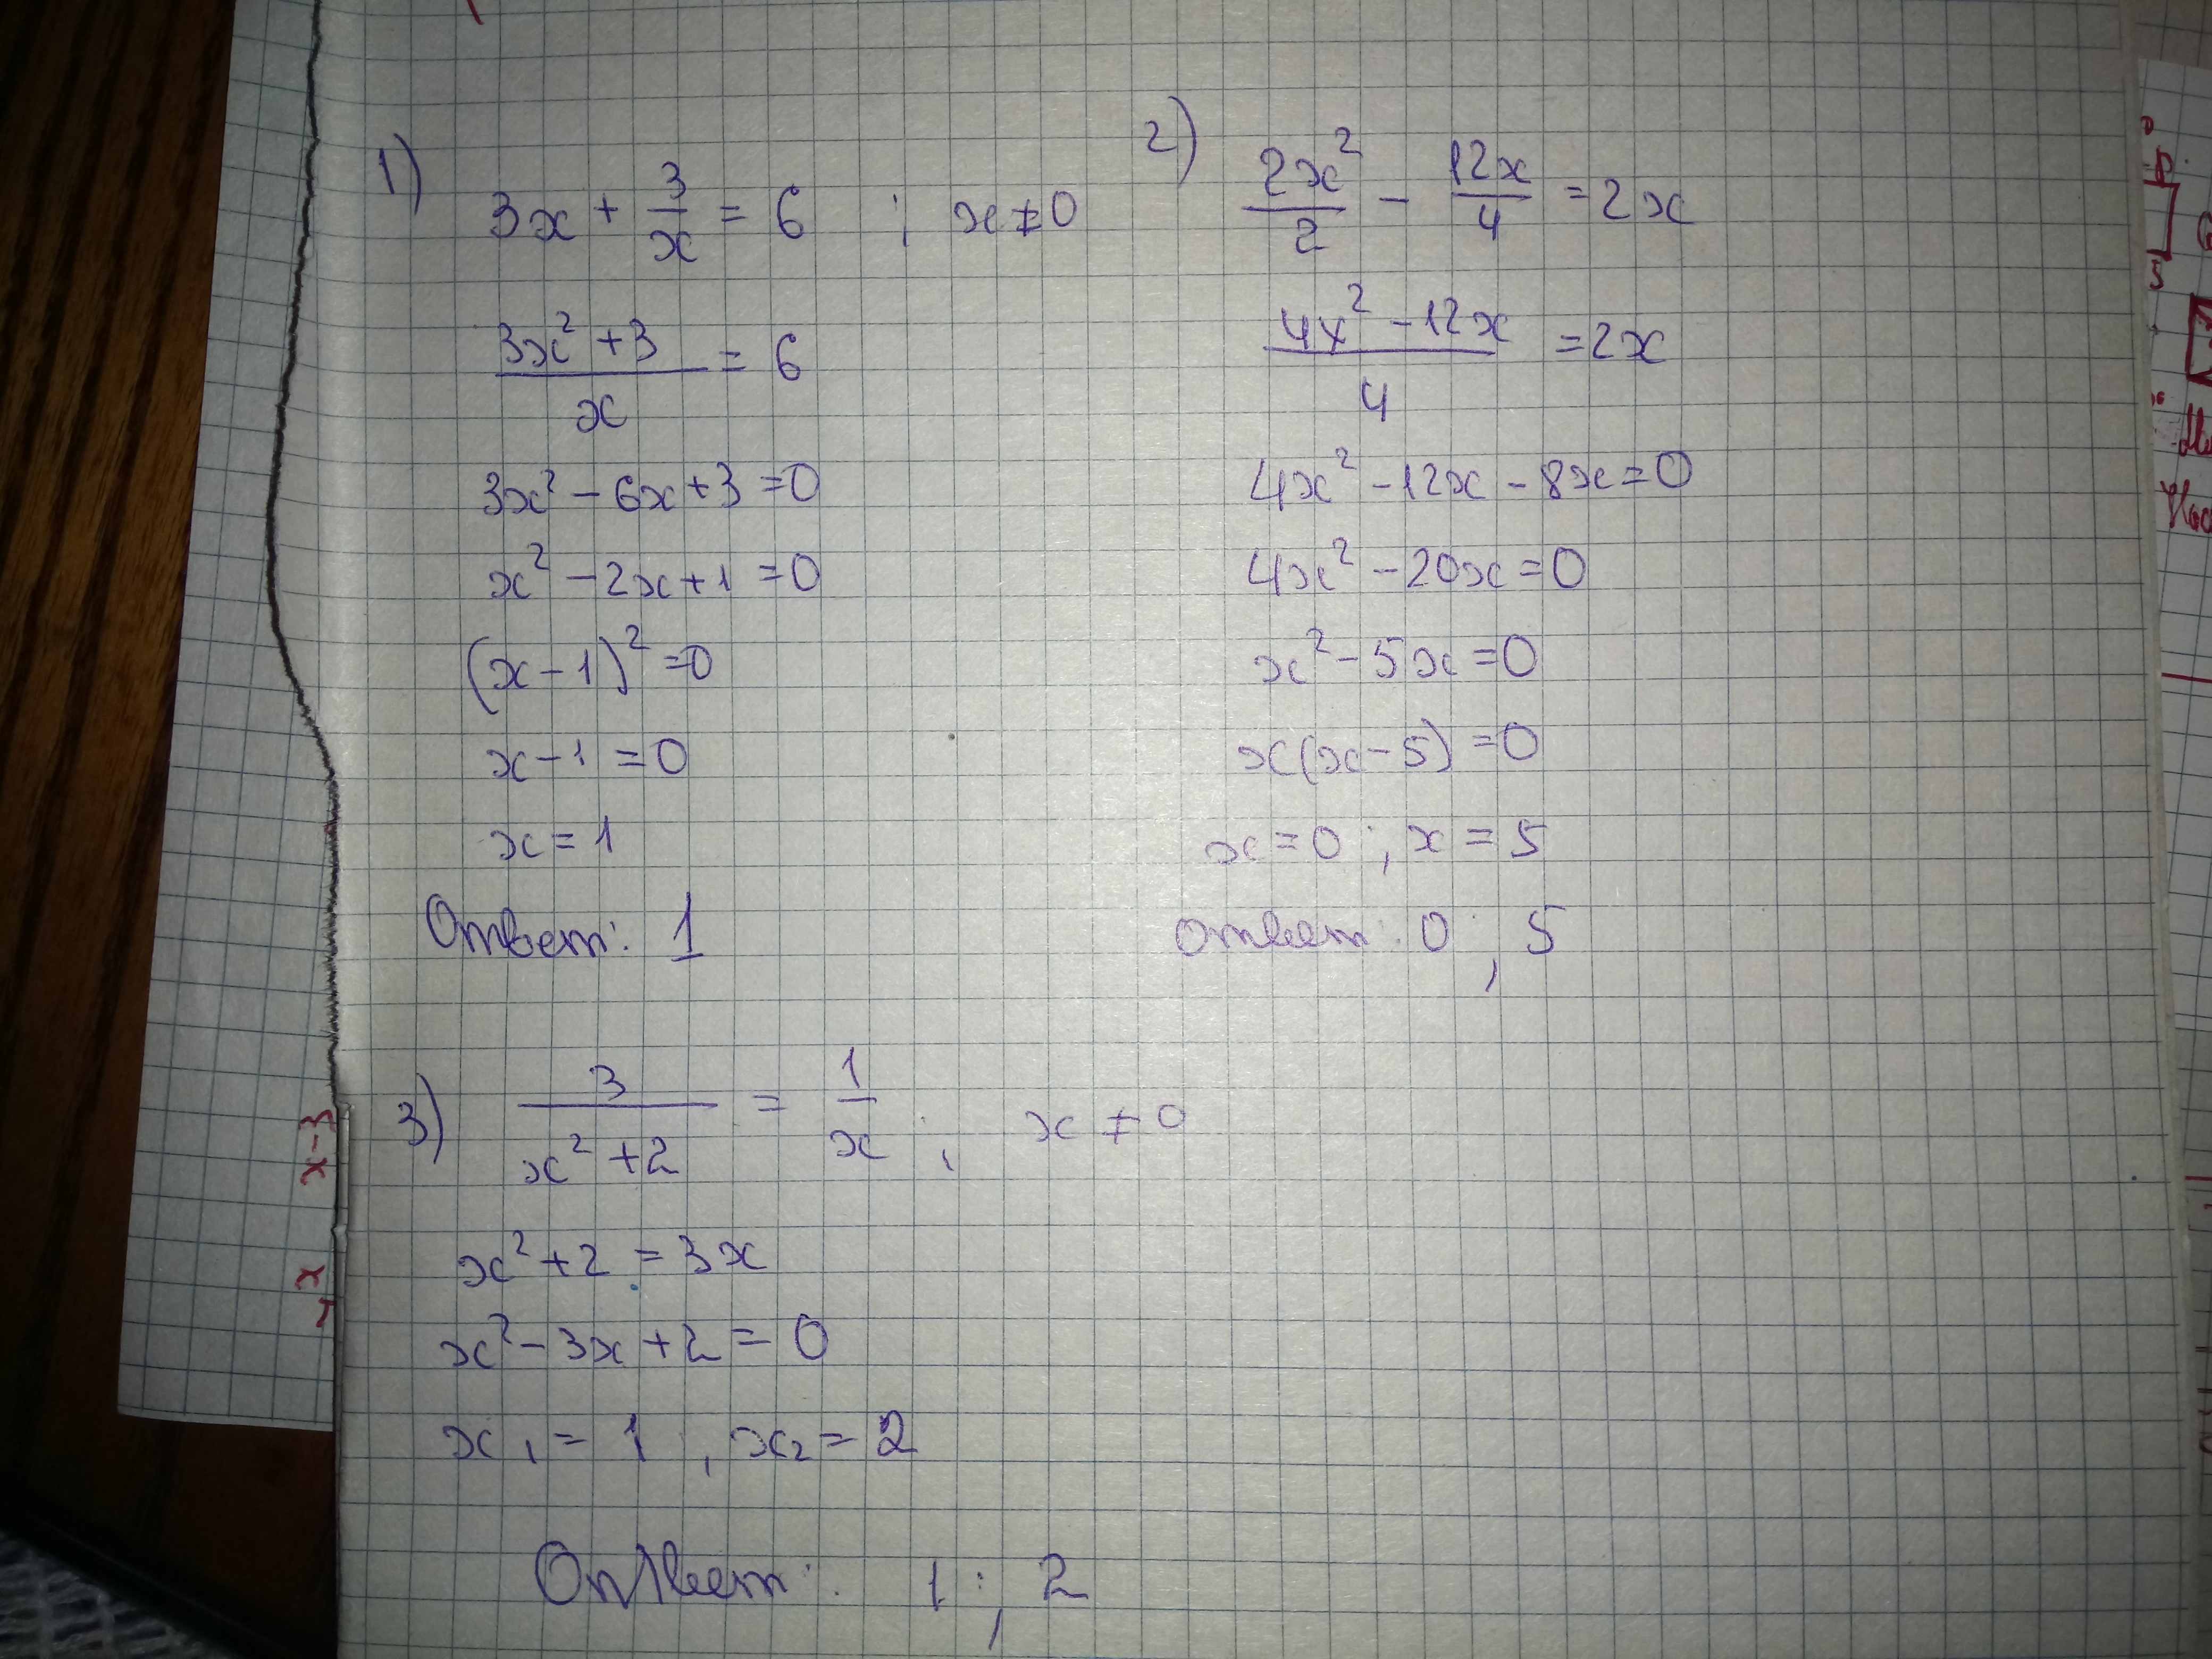 1)
3x + 3/x = 6 ; x ≠ 0
(3x² + 3)/x = 6
3x² - 6x + 3 = 0
x² - 2x + 1 = 0
(x - 1)² = 0
x - 1 = 0
x = 1
Ответ: 1
2)
2x²/2 - 12x/4 = 2x
(4x² - 12x)/4 = 2x
4x² - 12x - 8x = 0
4x² - 20x = 0
x² - 5x = 0
x(x - 5) = 0
x = 0 ; x = 5
Ответ: 0 ; 5
3)
3/(x² + 2) = 1/x ; x ≠ 0
x² + 2 = 3x
x² - 3x + 2 = 0
x₁ = 1 , x₂ = 2
Ответ: 1 ; 2
x-3
x